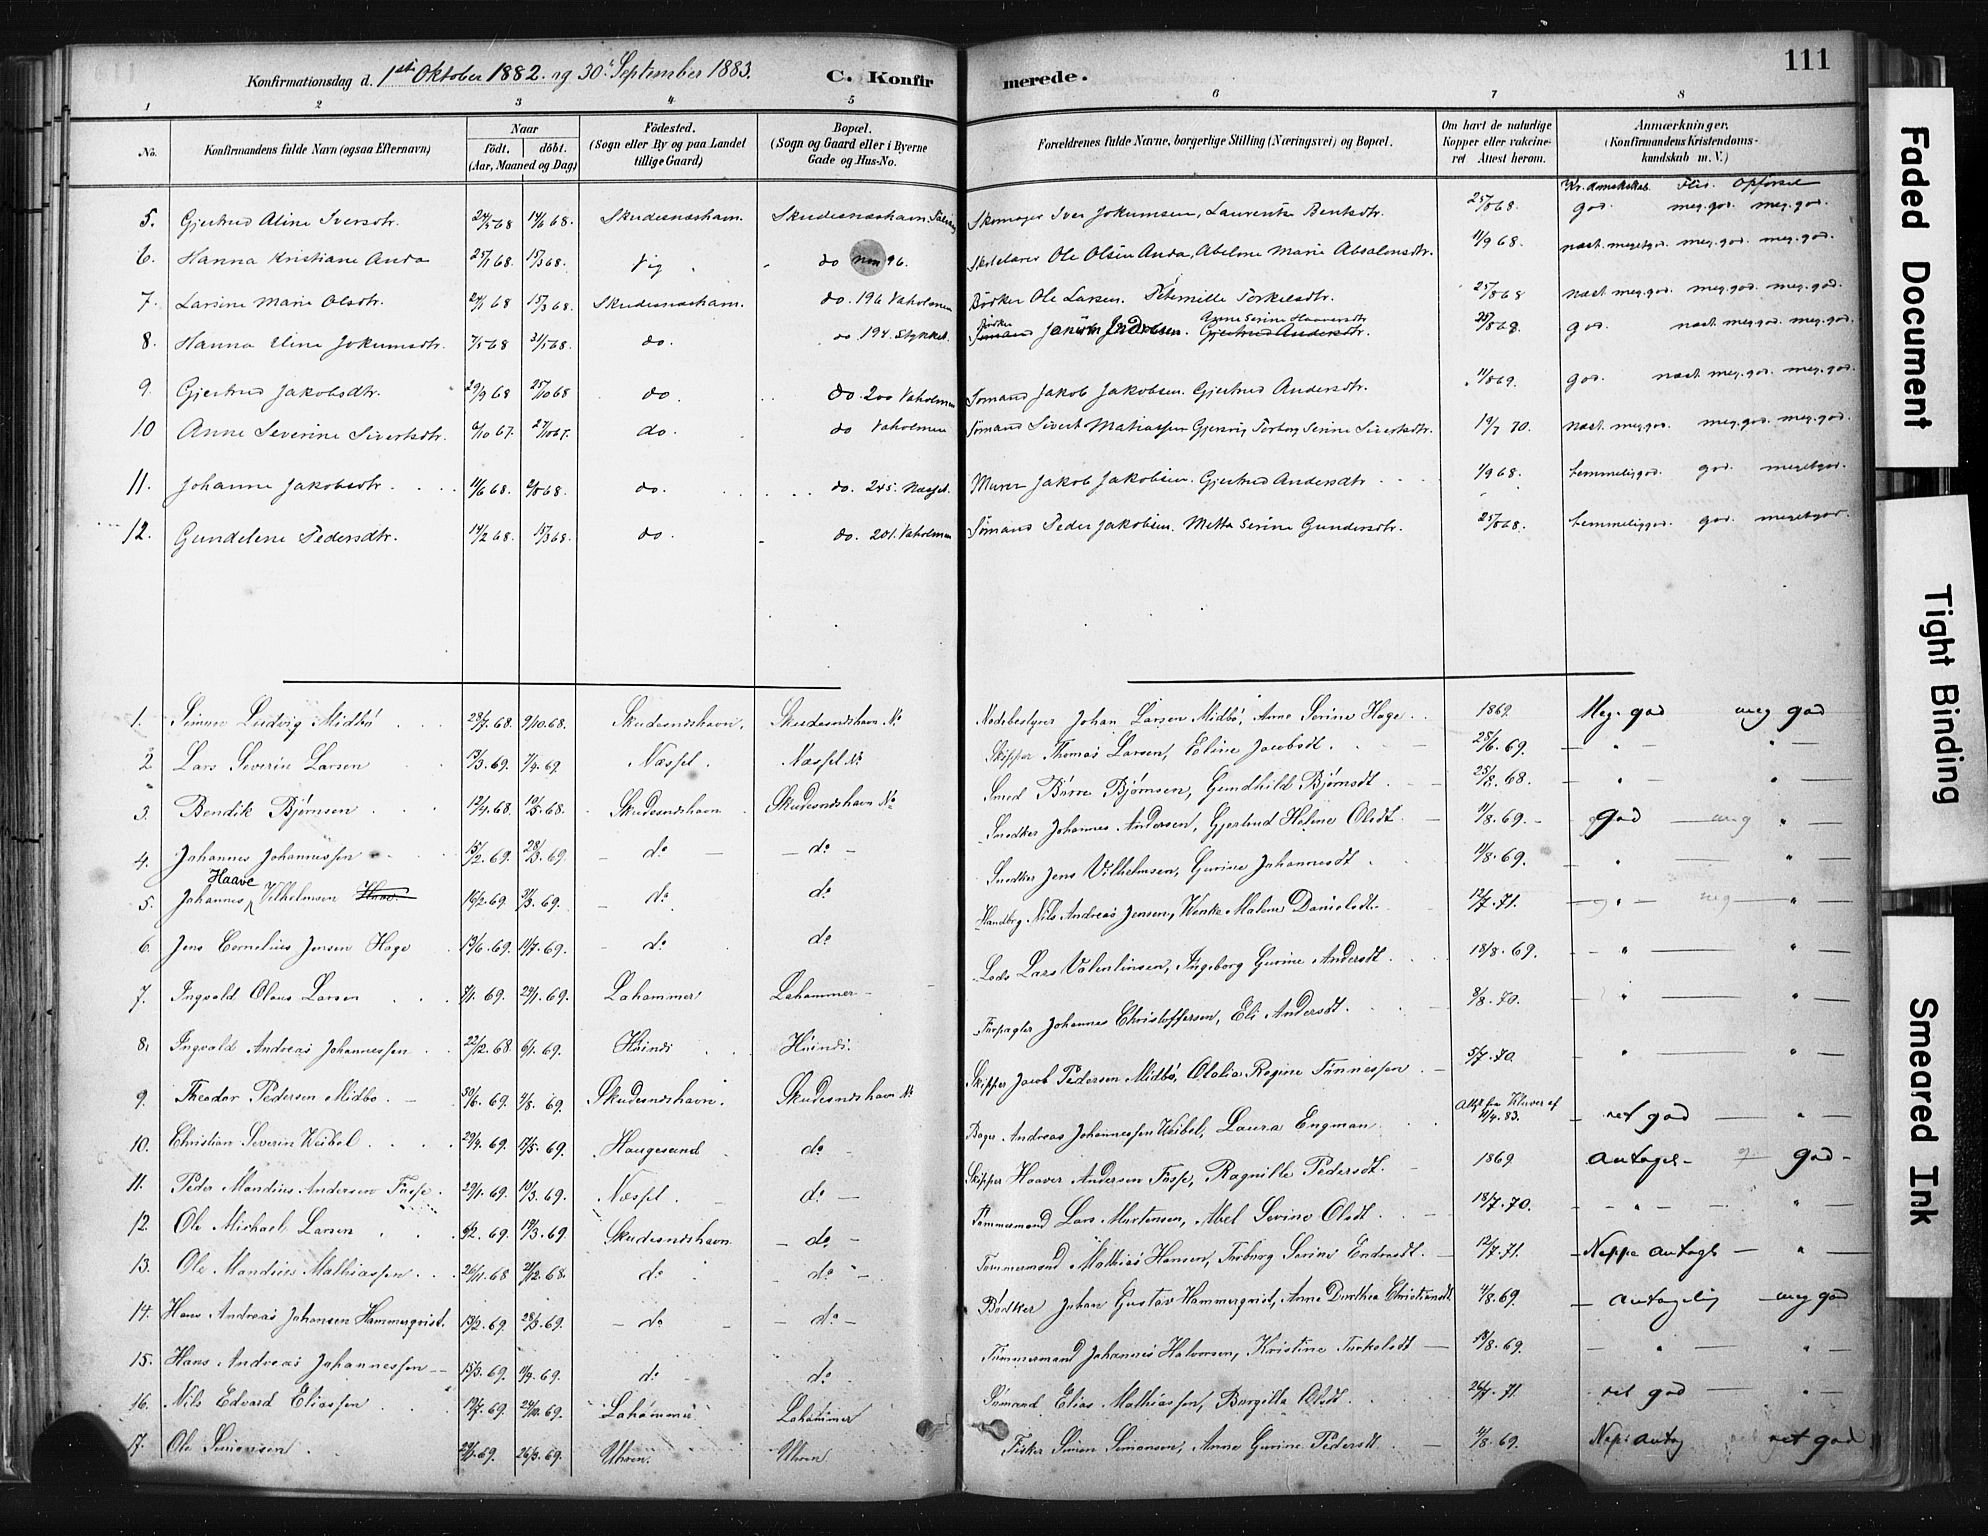 Konfirmationsdag d. 1ste Oktober 1882. og 30te September 1883. C. Konfirmerede. 111
1 2 3 4 5 6 7 8
No. Konfirmandens fulde Navn (ogsaa Efternavn) Naar født. døbt. (Aar, Maaned og Dag) Fødested. (Sogn eller By og paa Landet tillige Gaard) Bopæl. (Sogn og Gaard eller i Byerne Gade og Hus-No. Forældrenes fulde Navne, borgerlige Stilling (Næringsvei) og Bopæl. Om havt de naturlige Kopper eller vakcineret Attest herom. Anmærkninger. (Konfirmandens Kristendomskundskab m. V.)
Kr. domskskab. Flid. Opførsel
5. Gjertrud Aline Iversdtr. 24/5 68 14/6 68. Skudesnæshavn. Skudesnæshavn. Skomager Iver Jokumsen, Laurentse Bentsdtr. 25/8 68. god. meg. god. meg. god.
6. Hanna Kristiane Anda 25/1 68. 15/3 68. Vig do 96. Skolelærer Ole Olsen Anda, Abelone Marie Absalonsdtr. 11/9 68. næst. megetgod. meg. god. meg. god.
7. Larsine Marie Olsdtr. 24/1 68 15/3 68. Skudesnæshavn. do. 196 Vaholmen Bødker Ole Larsen. Peternille Torkelsdtr. 25/8 68 næst meg. god. meg. god. meg. god.
8. Hanna Eline Jokumsdtr. 7/5 68 31/5 68. do. do 194. Stykket. Jokum Jakobsen. Anne Serine Haaversdtr Gjertrud Andersdtr. 25/8 68. god. næst meg. god. meg. god.
9. Gjertrud Jakobsdtr. 29/9 68 25/10 68 do. do. 200 Vaholmen Sømand Jakob Jakobsen. Gjertrud Andersdtr. 11/8 69. god. næst meg. god. meg. god.
10 Anne Severine Sivertsdtr. 6/10 67. 27/10 67. do. do Vaholmen Sømand Sivert Matiassen Gjenvig Torborg Serine Sivertsdtr. 19/7 70. næst. meg. god. meg. god. meg. god.
11. Johanne Jakobsdtr. 11/6 68. 2/8 68. do. do. 245. Næsset. Murer Jakob Jakobsen. Gjertrud Andersdtr 1/9 68. temmeliggod. god. megetgod.
12. Gundelene Pedersdtr. 14/2 68. 15/3 68. do. do. 201. Vaholmen Sømand Peder Jakobsen. Metta Serine Gundersdtr. 25/8 68. temmeliggod. god. megetgod.
1. Simon Ludvig Midbö 28/7. 68. 9/10. 68. Skudesnæshavn. Skudesnæshavn No Johan Larsen Midbö, Anne Serine Hage. 1869. Meg. god meg god
2 Lars Severin Larsen 13/3. 69. 7/4. 69. Næsset. Næsset No Skipper Thomas Larsen, Eline Jacobsdt. 25/6. 69. — " — " —
3. Bendik Bjørnsen 12/4. 68. 10/5. 68. Skudesnæshavn Skudesnæshavn No Smed Börre Bjørnsen, Gundhild Bjørnsdt 25/8. 68. — " — " —
4. Johannes Johannessen 15/2. 69. 28/3. 69. — do — — do — Snedker Johannes Andersen, Gjertrud Helene Olsdt. 11/8. 69. god — meg " —
5. Johannes Haave Vilhelmsen Haave 16/2. 69. 31/3. 69. — do — do Snedker Jens Vilhelmsen, Gurine Johannesdt 11/8. 69. — " — " —
6. Jens Cornelius Jensen Hage 13/6. 69. 11/7. 69. — do do Handbg. Nils Andreas Jensen, Wenke Malene Danielsdt. 12/7. 71. — " — meg — " —
7. Ingvald Olaus Larsen 8/1. 69. 24/1. 69. Lahammer Lahammer — Lods Lars Valentinsen, Ingeborg Gurine Andersdt 18/8. 69. — " — " —
8. Ingvald Andreas Johannessen 22/12. 68 6/1. 69. Höinds Höinds. Forpagter Johannes Christoffersen, Eli Andersdt. 8/8. 70. — " — " —
9. Theodor Pedersen Midbö 30/6. 69. 9/8. 69. Skudesnæshavn. Skudesnæshavn No Skipper Jacob Pedersen Midbö, Olalia Regine Tönnessen 5/7. 70. " — " —
10. Christian Severin Keibel 29/4. 69. 17/5. 69. Haugesund do Bager Andreas Johannessen Keibel, Laura Engman. Attest fra Kluver af 11/4. 83. — ret god — " —
11. Peder Mandius Andersen Fosse. 29/1. 69. 19/3. 69. Næsset. — do — Skipper Haaver Andersen Fosse, Ragnille Pedersdt. 1869 antagel- god -
12. Ole Michael Larsen 6/2. 69. 19/3. 69. Skudesnæshavn — do — Tømmermand Lars Mortensen, Abel Serine Olsdt. 18/7. 70. — " — "
13. Ole Mandius Mathiassen 26/11. 68 21/12. 68. do — do — Tømmermand Mathias Hansen, Torborg Serine Endresdt. 12/7. 71. — Neppe antagl — " —
14. Hans Andreas Johansen Hammerqvist. 13/2. 69. 28/3. 69. — do — do — Bødker Johan Gustav Hammerqvist, Anne Dorthea Christiansdt 11/8. 69. — antagelig — meg god
15. Hans Andreas Johannessen 15/3. 69. 11/4. 69. do do Tømmermand Johannes Halvorsen, Kristine Torkelsdt — 18/8. 69. — " — "
16. Nils Edvard Eliassen 19/7. 69. 24/10. 69. Lahammer Lahammer Sømand Elias Mathiassen, Burgitta Olsdt. 26/7. 71. ret god — " —
17. Ole Simonsen 29/1. 69. 26/3. 69. Uhren. Uhren Fisker Simon Simonsen, Anne Gurine Pedersdt — 11/8. 69. Nep: antag ret god
Faded Document
Tight Binding
Smeared Ink